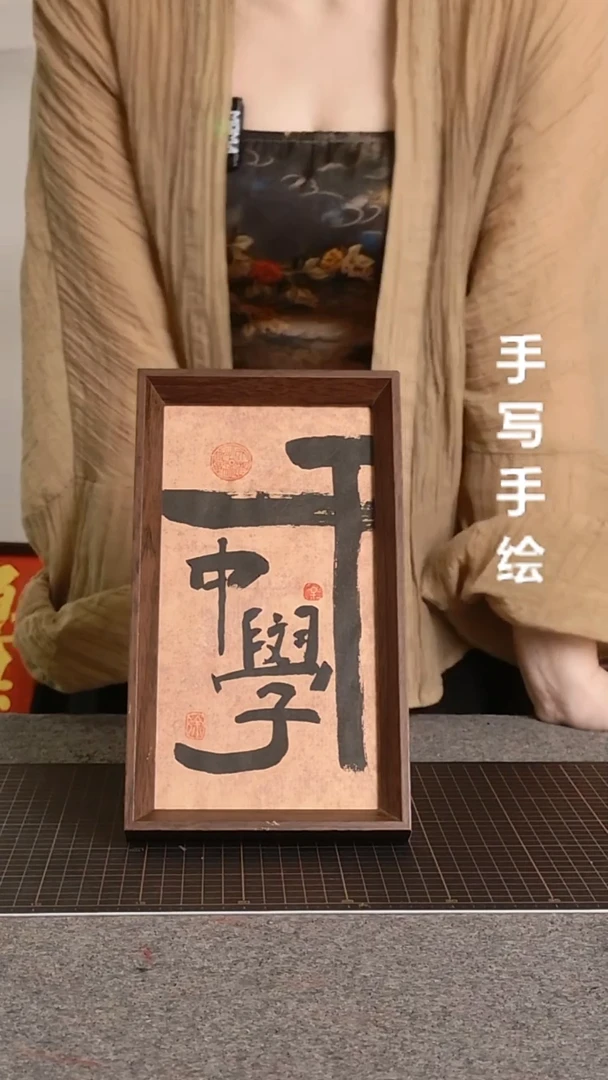 手写手绘
干中學